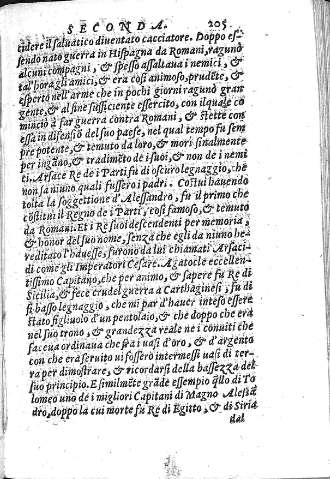 SECONDA. 205
cidere il saluatico diuentato cacciatore. Doppo es-
sendo nata guerra in Hispagna da Romani, ragunò
alcuni compagni, & spesso assaltaua i nemici, &
tal'hora gli amici, & era cosi animoso, prudẽte, &
esperto nell'arme che in pochi giorni ragunò gran
gente, & al fine sufficiente essercito, con il quale co
minciò à far guerra contra Romani, & stette con
essa in difensiõ del suo paese, nel qual tempo fu sem
pre potente, & temuto da loro, & morì finalmente
per ingãno, & tradimẽto de i suoi, & non de i nemi
ci. Arsace Re de i Parti fu di oscuro legnaggio, che
non sa niuno quali fussero i padri. Costui hauendo
tolta la soggettione d'Alessandro, fu il primo che
cõstituì il Regno de i Parti, cosi famoso, & temuto
da Romani. Et i Re suoi descendenti per memoria,
& honor del suo nome, senza che egli da niuno he-
reditato l'hauesse, furono da lui chiamati Arsaci-
di come gli Imperatori Cesare. Agatocle eccellen-
tissimo Capitano, che per animo, & sapere fu Re di
Sicilia, & fece crudel guerra a Carthaginesi, fu di
sì basso legnaggio, che mi par d'hauer inteso essere
stato figliuolo d'un pentolaio, & che doppo che era
nel suo trono, & grandezza reale ne i conuiti che
facea ordinaua che frà i uasi d'oro, & d'argento
con che era seruito ui fosserò intermessi uasi di ter-
ra per dimostrare, & ricordarsi della bassezza del
suo principio. E similmẽte grãde essempio q̃llo di To
lomeo uno de i migliori Capitani di Magno Alessã
dro, doppo la cui morte fu Re di Egitto, & di Siria
dal